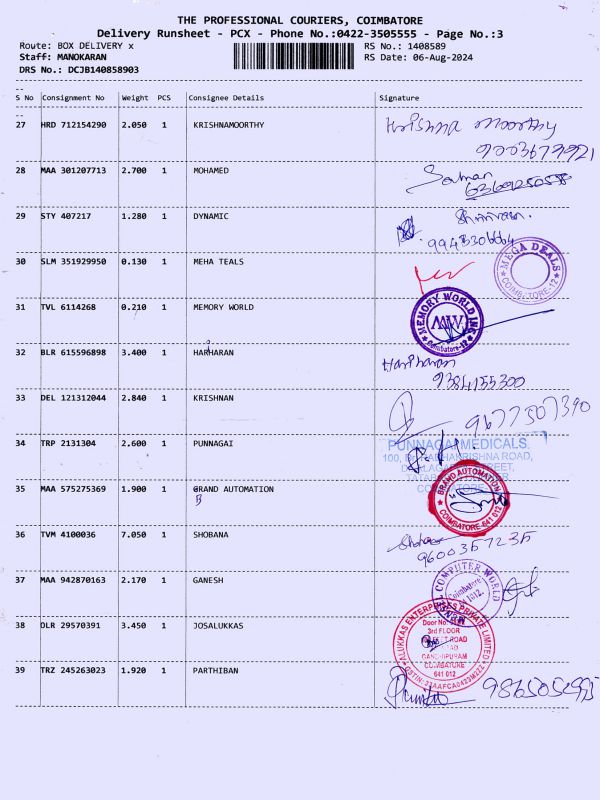 THE PROFESSIONAL COURIERS, COIMBATORE
Delivery Runsheet - PCX - Phone No.:0422-3505555 - Page No.:3
Route: BOX DELIVERY x RS No.: 1408589
Staff: MANOKARAN RS Date: 06-Aug-2024
DRS No.: DCJB140858903
S No Consignment No Weight PCS Consignee Details Signature
27 HRD 712154290 2.050 1 KRISHNAMOORTHY Krishna moorthy
28 MAA 301207713 2.700 1 MOHAMED Salman
29 STY 407217 1.280 1 DYNAMIC
9943306664
30 SLM 351929950 0.130 1 MEHA TEALS MEGA DEALS COIMBATORE-12
31 TVL 6114268 0.210 1 MEMORY WORLD MEMORY WORLD INC MW Coimbatore-12
32 BLR 615596898 3.400 1 HARHARAN Hariharan
9384155300
33 DEL 121312044 2.840 1 KRISHNAN 9677507390
34 TRP 2131304 2.600 1 PUNNAGAI PUNNAGAI MEDICALS.
35 MAA 575275369 1.900 1 GRAND AUTOMATION BRAND AUTOMATION COIMBATORE 641 012
B
36 TVM 4100036 7.050 1 SHOBANA
9600367235
37 MAA 942870163 2.170 1 GANESH COMPUTER WORLD
38 DLR 29570391 3.450 1 JOSALUKKAS ALUKKAS ENTERPRISES PRIVATE LIMITED
3rd FLOOR
COIMBATORE
641 012
39 TRZ 245263023 1.920 1 PARTHIBAN